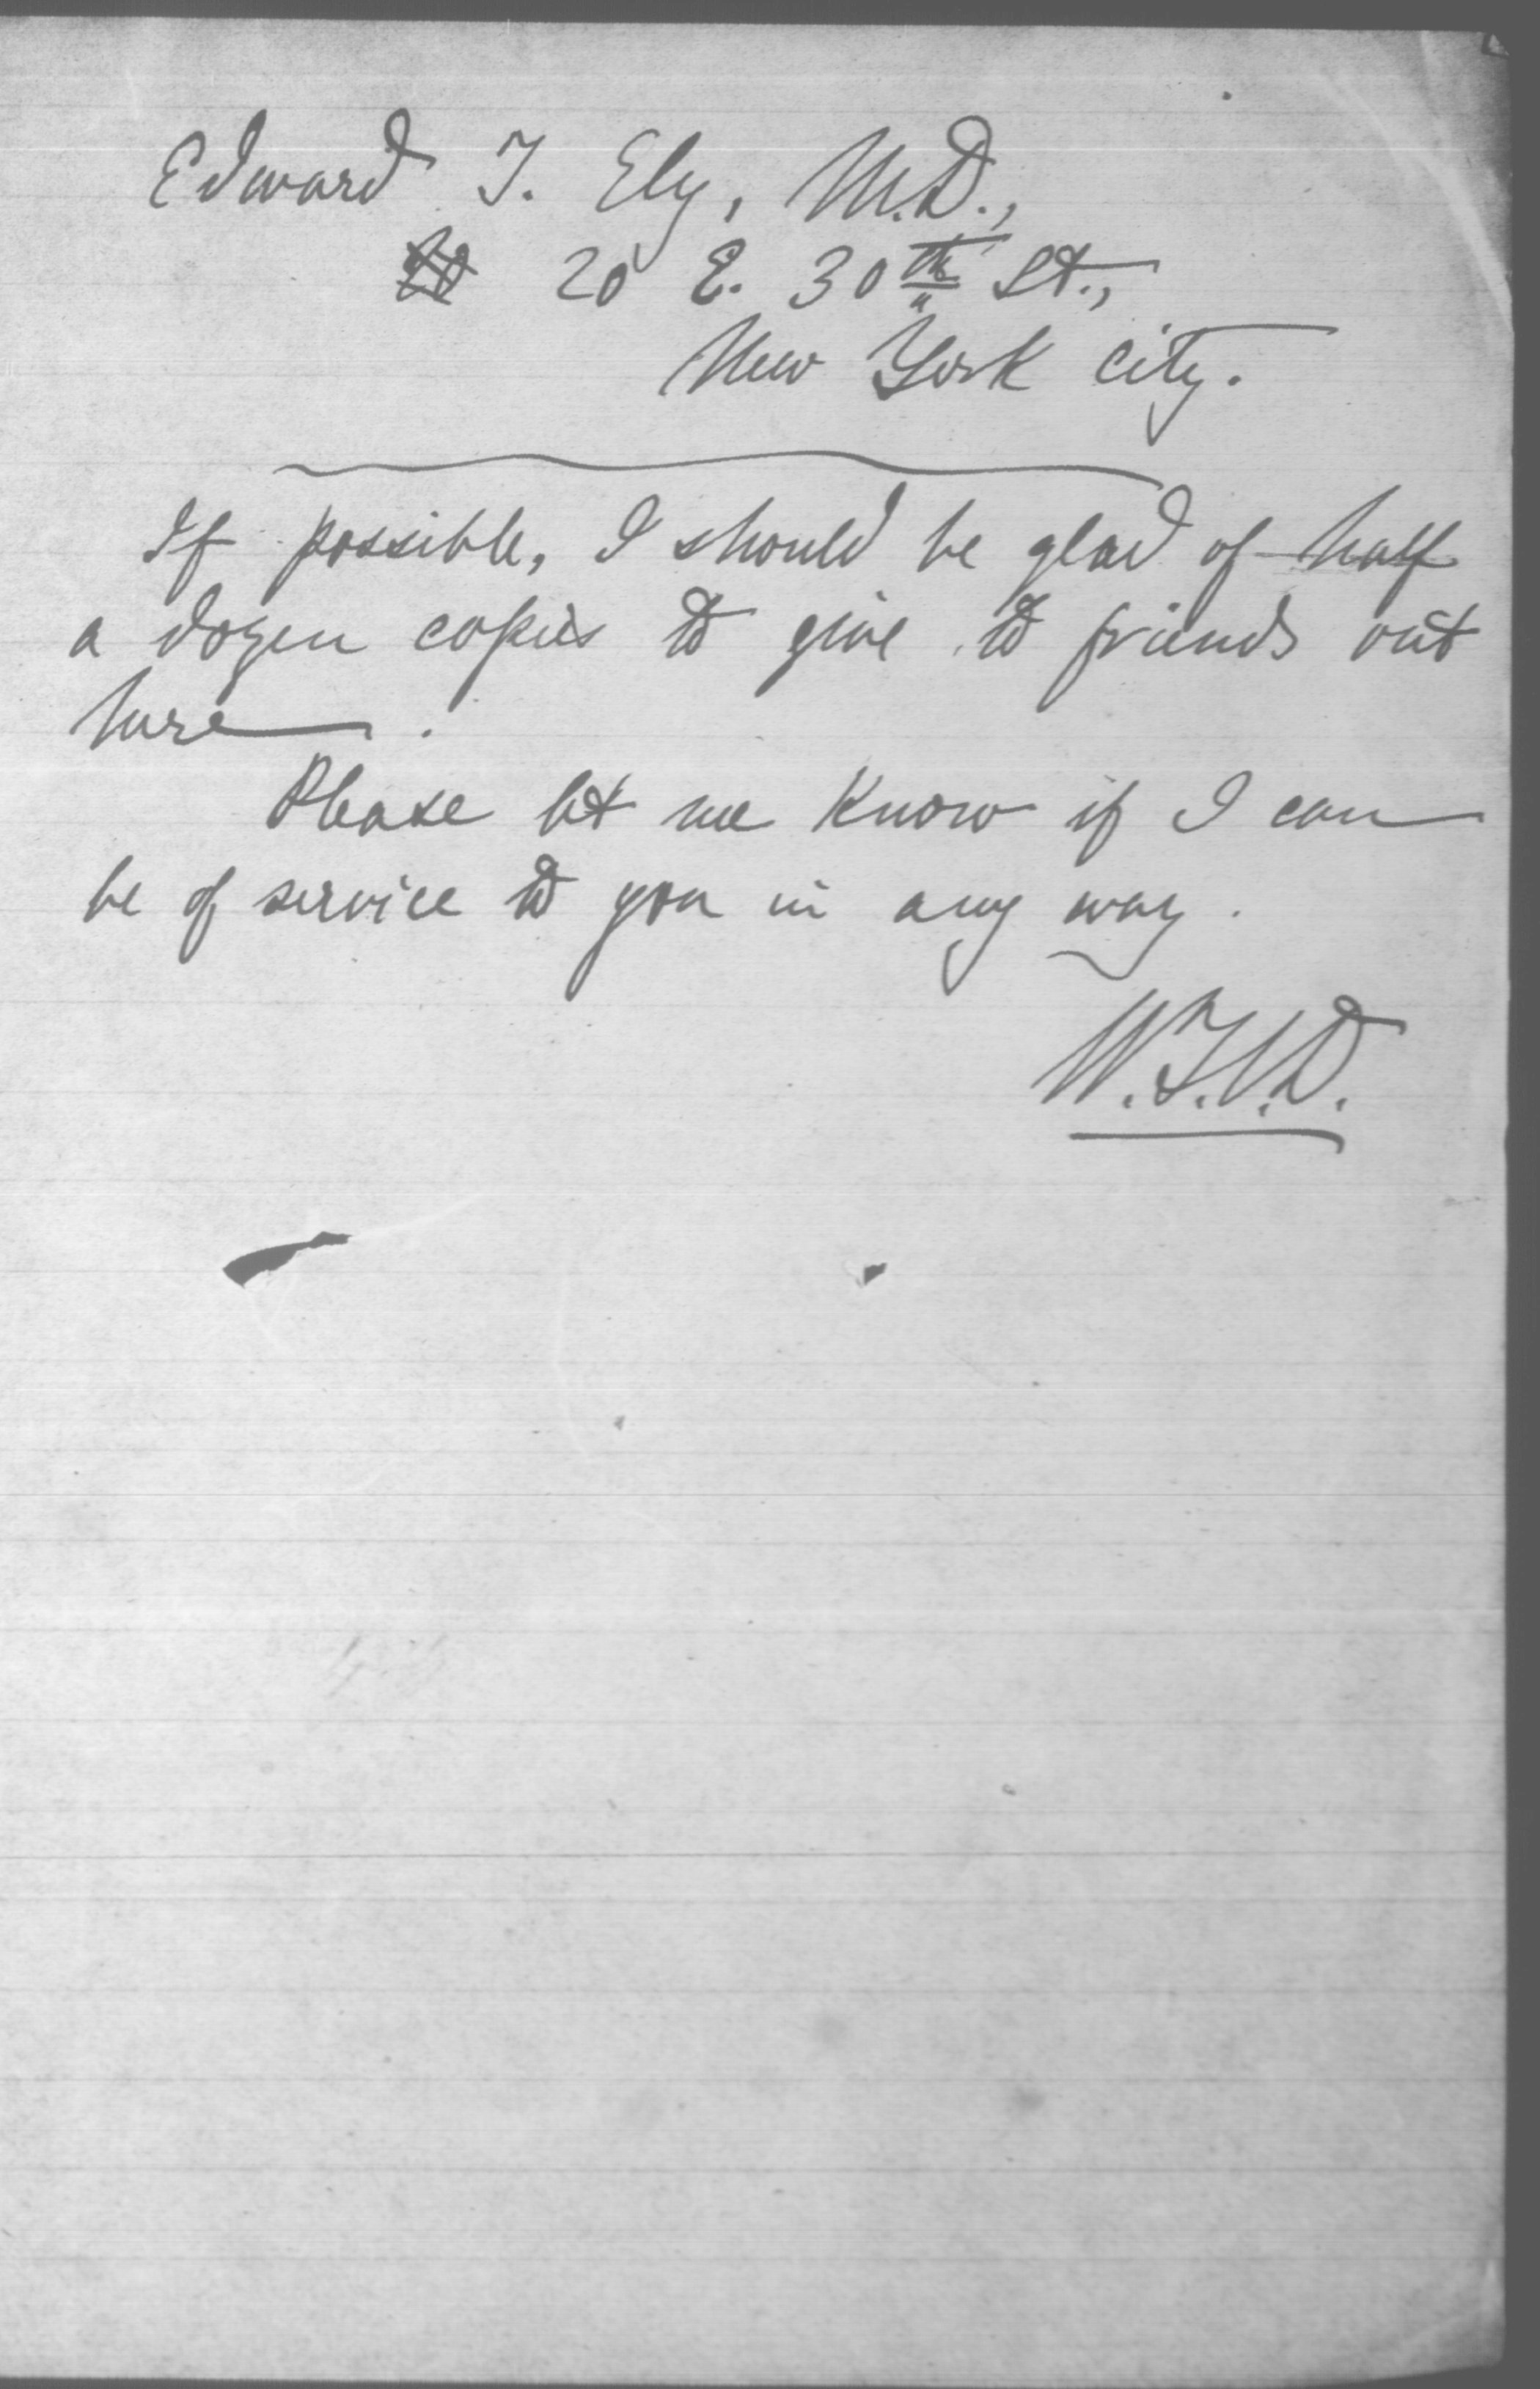 Edward T. Ely, M.D.,
20 E. 30th St.,
New York City.
If possible, I should be glad of half
a dozen copies to give to friends out
here.
Please let me know if I can
be of service to you in any way.
W.T.V.D.